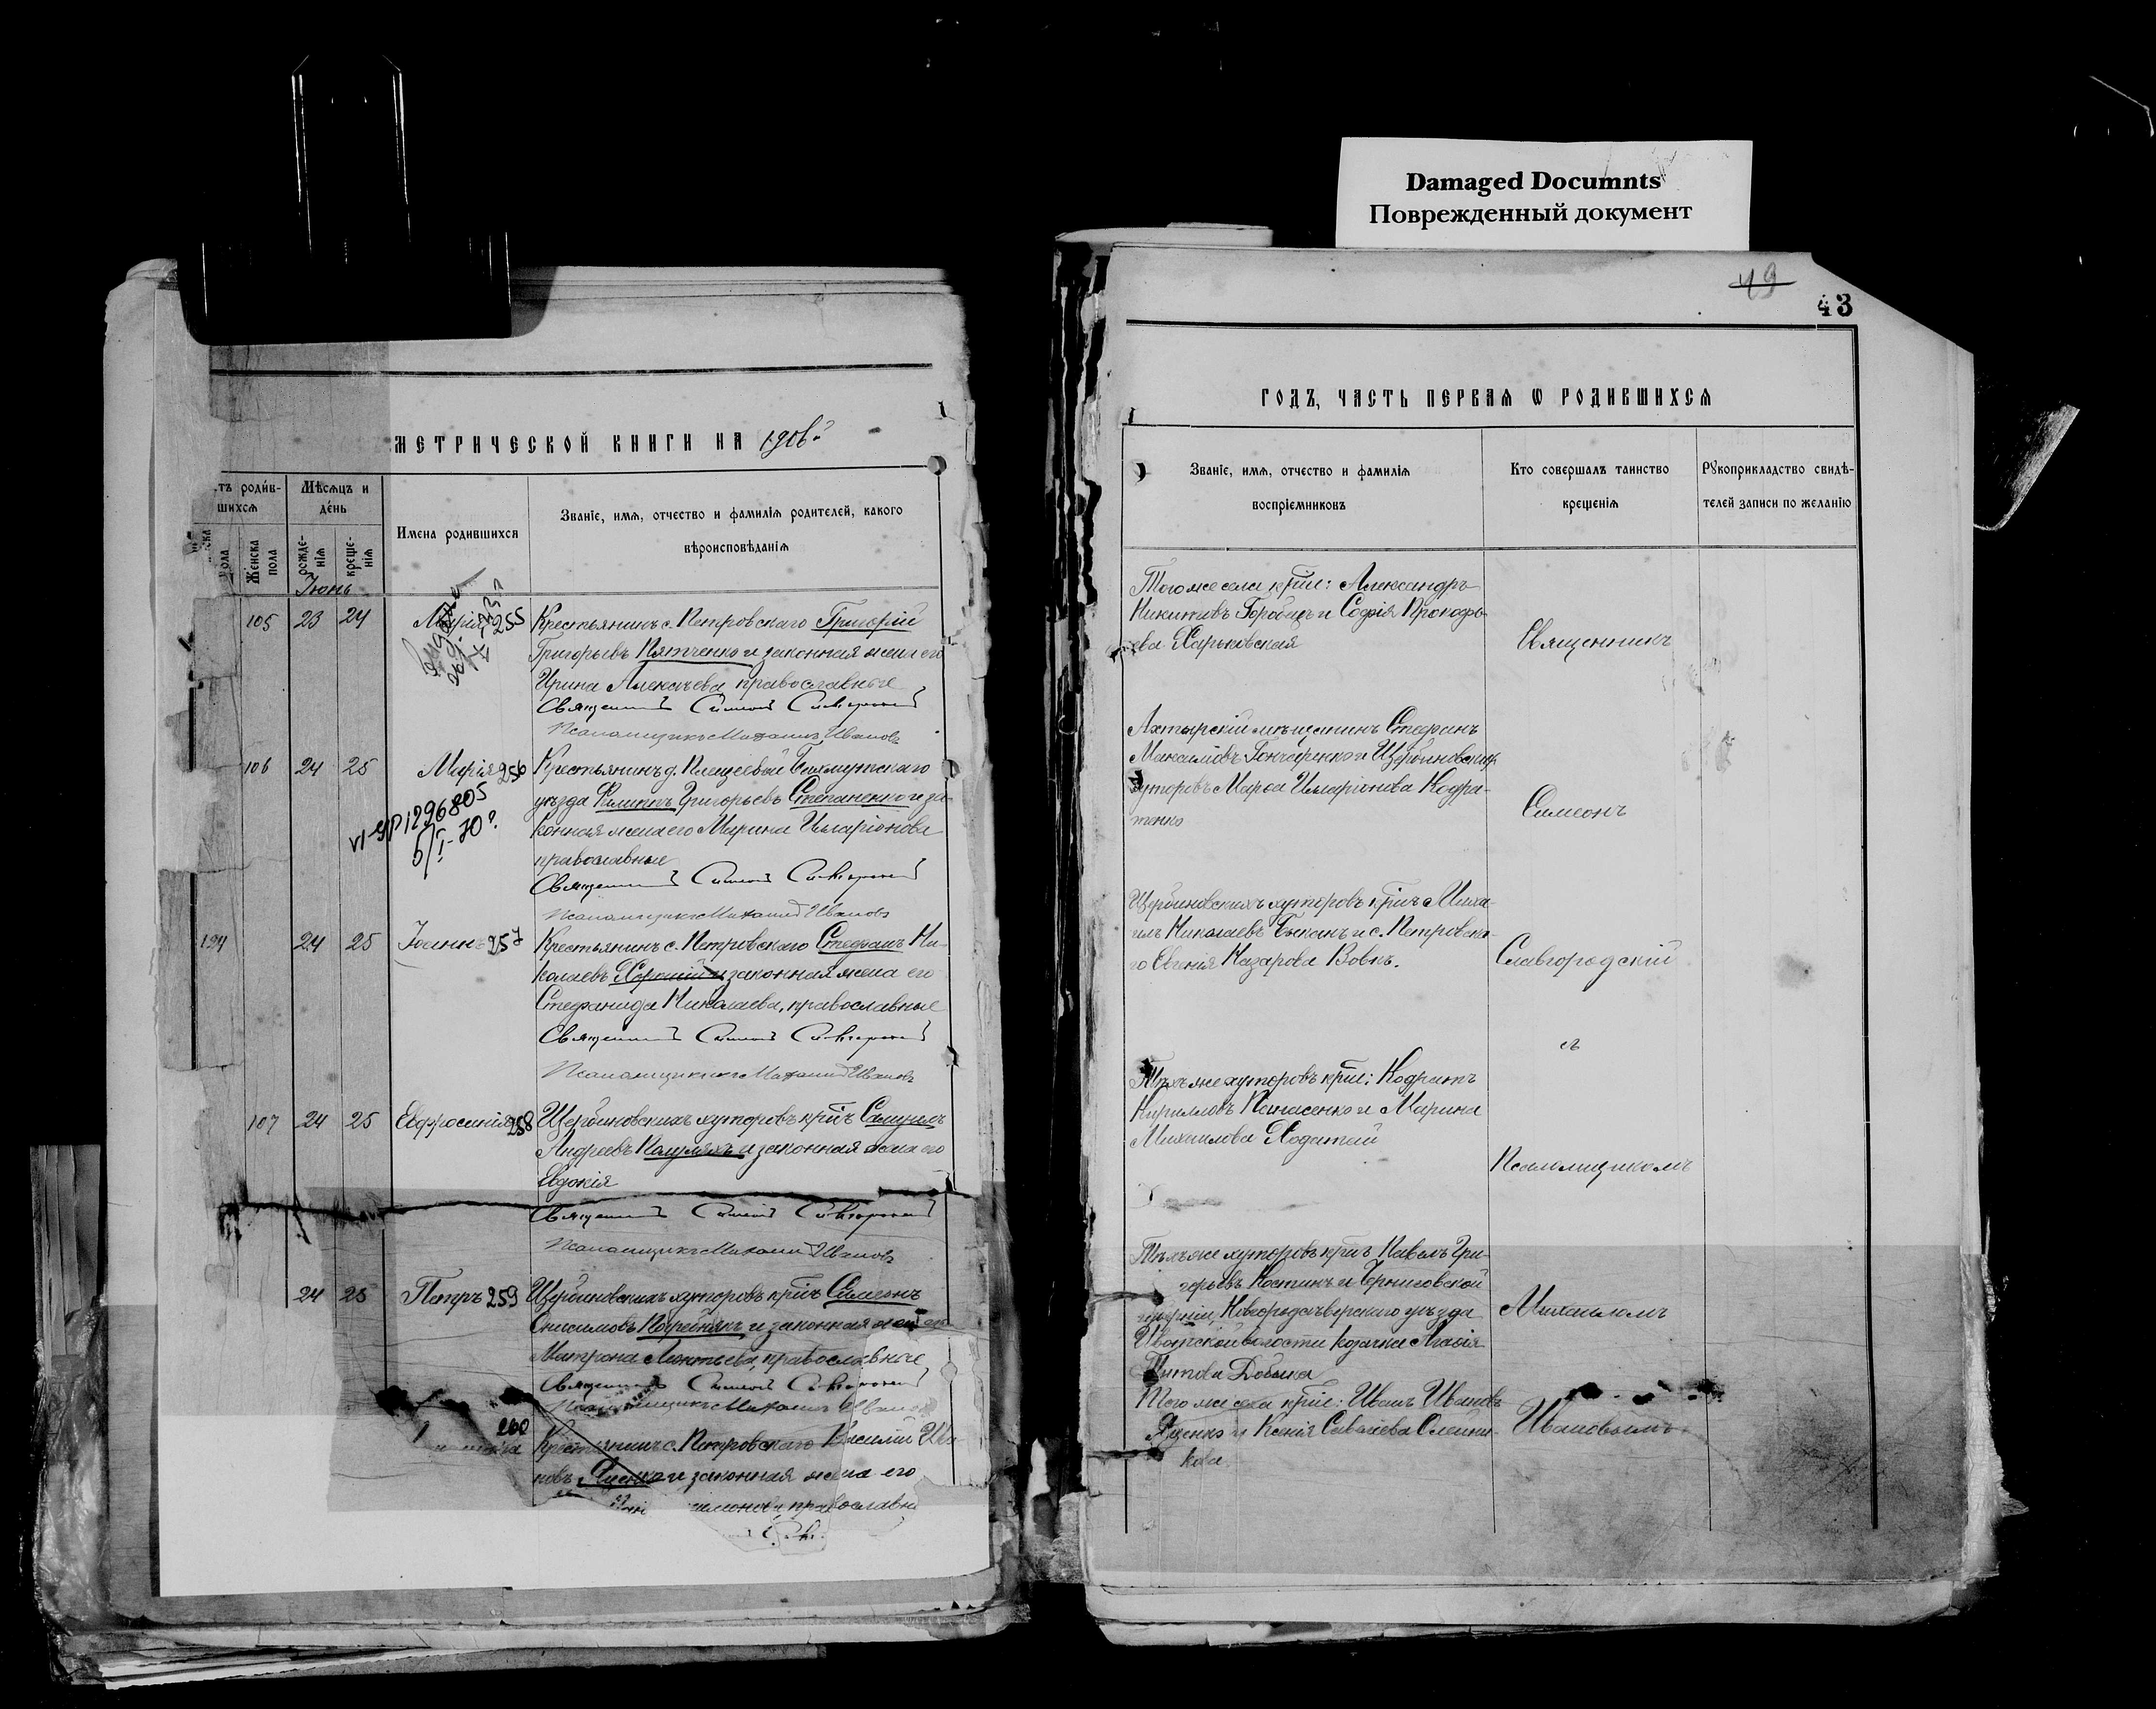 Damaged Documnts
Поврежденный документ
49
43
МЕТРИЧЕСКОЙ КНИГИ НА 1906й
шихсѧ
Мѣсѧцъ и
де́нь
Же́нска пола
рожде-нїѧ
креще-нїѧ
Имена родившихсѧ
Званїе, имѧ, отчество и фамилїѧ родителей, какого
вѣроисповѣданїѧ
Іюнь
105 23 24 Марія 255 Крестьянинъ с. Петровскаго Григорій
Григорьевъ Пятченко и законная жена его
Ирина Алексѣева, православные
Священникъ Симеонъ Славгородскій
Псаломщикъ Михаилъ Ивановъ
106 24 25 Марія 256 Крестьянинъ д. Плещеевой Бахмутскаго
уѣзда Филиппъ Григорьевъ Степаненко и за-
конная жена его Марина Иларіонова
православные
VI-ЯР 1296805
Священникъ Симеонъ Славгородскій
Псаломщикъ Михаилъ Ивановъ
124 24 25 Іоаннъ 257 Крестьянинъ с. Петровскаго Стефанъ Ни-
колаевъ и законная жена его
Стефанида Николаева, православные
Священникъ Симеонъ Славгородскій
Псаломщикъ Михаилъ Ивановъ
107 24 25 Евфросинія 258 Щербиновскихъ хуторовъ кр҃нъ Самуилъ
Андреевъ и законная жена его
Евдокія
Священникъ Симеонъ Славгородскій
Псаломщикъ Михаилъ Ивановъ
24 25 Петръ 259 Щербиновскихъ хуторовъ кр҃нъ Симеонъ
Онисимовъ и законная жена его
Матрона Леонтьева, православные
Священникъ Симеонъ Славгородскій
Псаломщикъ Михаилъ Ивановъ
260
Крестьянинъ с. Петровскаго Василій Ива
новъ Яценко и законная жена его
православн
ГОДЪ, ЧАСТЬ ПЕРВАѦ Ѡ РОДИВШИХСѦ
Званїе, имѧ, отчество и фамилїѧ
воспрїемниковъ
Кто совершалъ таинство
крещенїѧ
Рꙋкоприкладство свидѣ-
телей записи по желанїю
Того же села кр҃не: Александръ
Никитовъ Горобецъ и Софія Прокофь-
ева Харьковская
Священникъ
Ахтырскій мѣщанинъ Стефанъ
Максимовъ Гончаренко и Щербиновскихъ
хуторовъ Марфа Иларіонова Кодра-
тенко
Симеонъ
Щербиновскихъ хуторовъ кр҃нъ Миха-
илъ Николаевъ Быканъ и с. Петровска-
го Евгенія Назарова Вовкъ.
Славгородскій
съ
Тѣхъ же хуторовъ кр҃не: Кодратъ
Кирилловъ Панасенко и Марина
Михаилова Ходатай
Псаломщикомъ
Тѣхъ же хуторовъ кр҃нъ Павелъ Гри-
горьевъ Костинъ и Черниговской
губерніи, Новгородсѣверскаго уѣзда
волости козачка
Титова
Михаиломъ
Того же села кр҃не: Иванъ Ивановъ
Яценко и Ксенія Савваева Олейни-
кова
Ивановымъ